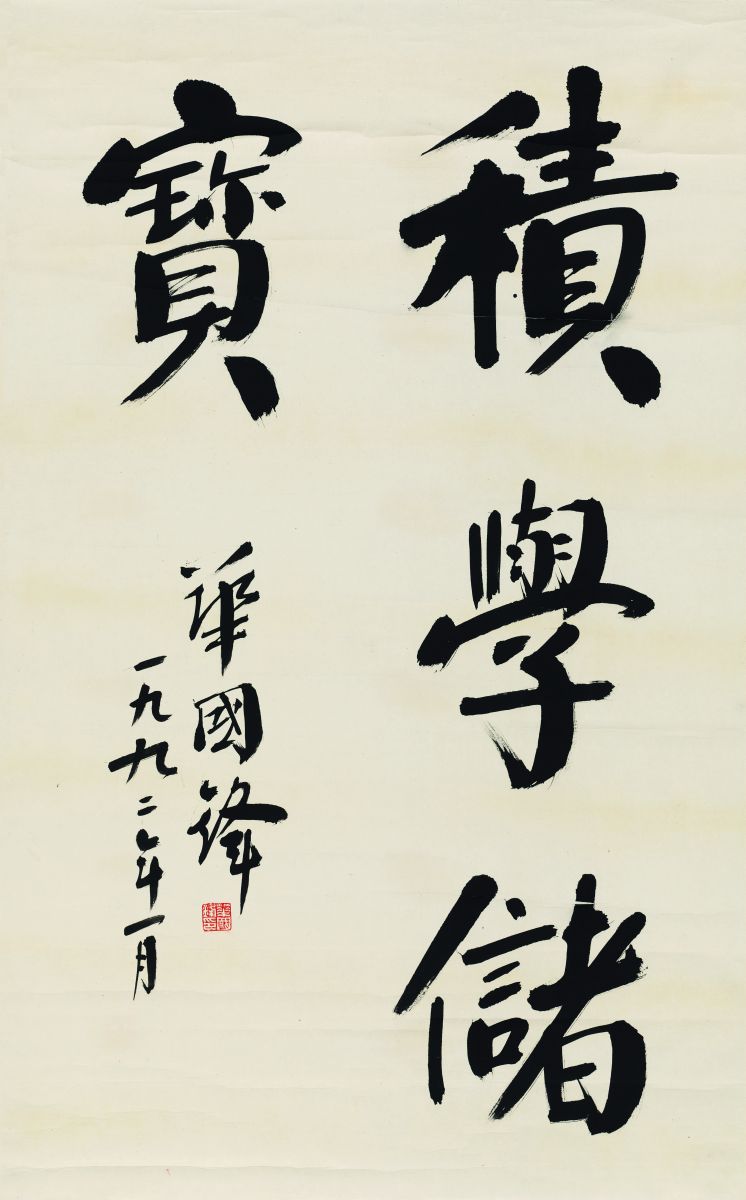 積學儲
寶
華國鋒
一九九二年一月